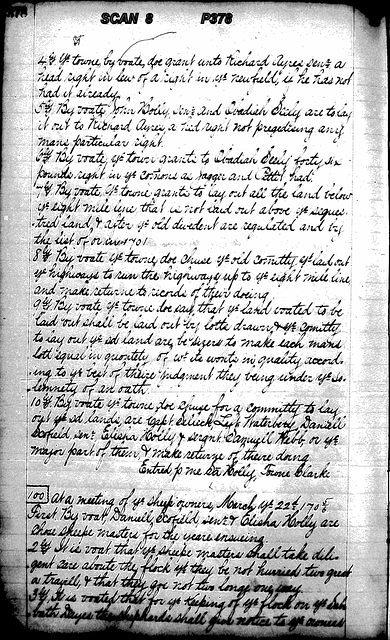 SCAN 8 P378
4ly ye towne by voate, doe grant unto Richard Ayres senr a
head right in lew of a right in ye newfield, if he has not
had it already.
5ly By voate John Holly, senr and Obadiah Seely are to lay
it out to Richard Ayres, a hed right not pregedicing any
mans particular right.
6ly By voate, ye town grants to Obadiah Seely forty six
pounds right in ye comons as had
7ly By voate, ye towne grants to lay out all the land below
ye eight mile line that is not laid out above ye seques
tred land, & after ye old divedent are regulated and by
the list of 1701
8ly By voate ye towne doe chuse ye old comitty, yt laid out
ye highways to run the highways up to ye eight mile line
and make returne to records of their doeing
9ly By voate ye towne doe say, that ye land voated to be
laid out shall be laid out by lotts drawn, & ye comitty
to lay out ye sd land are to make each mans
lott equal in quantety of wt its worth in quality, accord
ing to ye best of theire judgment they being under ye so
lemnety of an oath.
10ly By voate ye towne doe chuse for a committy to lay
out ye sd lands, are Capt Selleck, Left Waterbery, Daniell
Scofeld, senr, Elisha Holly & Sergnt Samuell Webb, or ye
major part of them, & make returne of there doing
Entred p me Holly, Towne Clarke
100 At a meeting of ye sheep owners, March, ye 22d, 170
First By voat, Daniell Scofeld, senr & Elisha Holly are
chose sheepe masters for the yeare ensueing
2ly It is voat that ye sheepe masters shall take dili-
gent care about the flock yt they be not hurried two great
a travell, & that they goe not two longe on
3ly It is voated that for ye takeing of ye flock on ye Sab
bath Dayes the shepherds shall give notice to ye owners